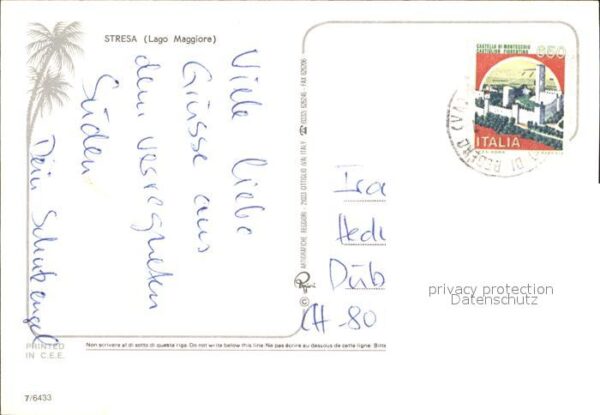 STRESA (Lago Maggiore)
Viele liebe
Grüsse aus
dem verregneten
Süden
Dein Schutzengel
PRINTED
IN C.E.E.
7/6433
Non scrivere al di sotto di questa riga. Do not write below this line. Ne pas écrire au dessous de cette ligne. Bitte
© ARTIGRAFICHE REGGIORI - 21033 CITTIGLIO (VA) ITALY ☎ 0332/ 626245 - FAX 626206
CASTELLO DI MONTECCHIO
CASTIGLION FIORENTINO
650
ITALIA
Ira
Hedi
Düb
CH-80
privacy protection
Datenschutz